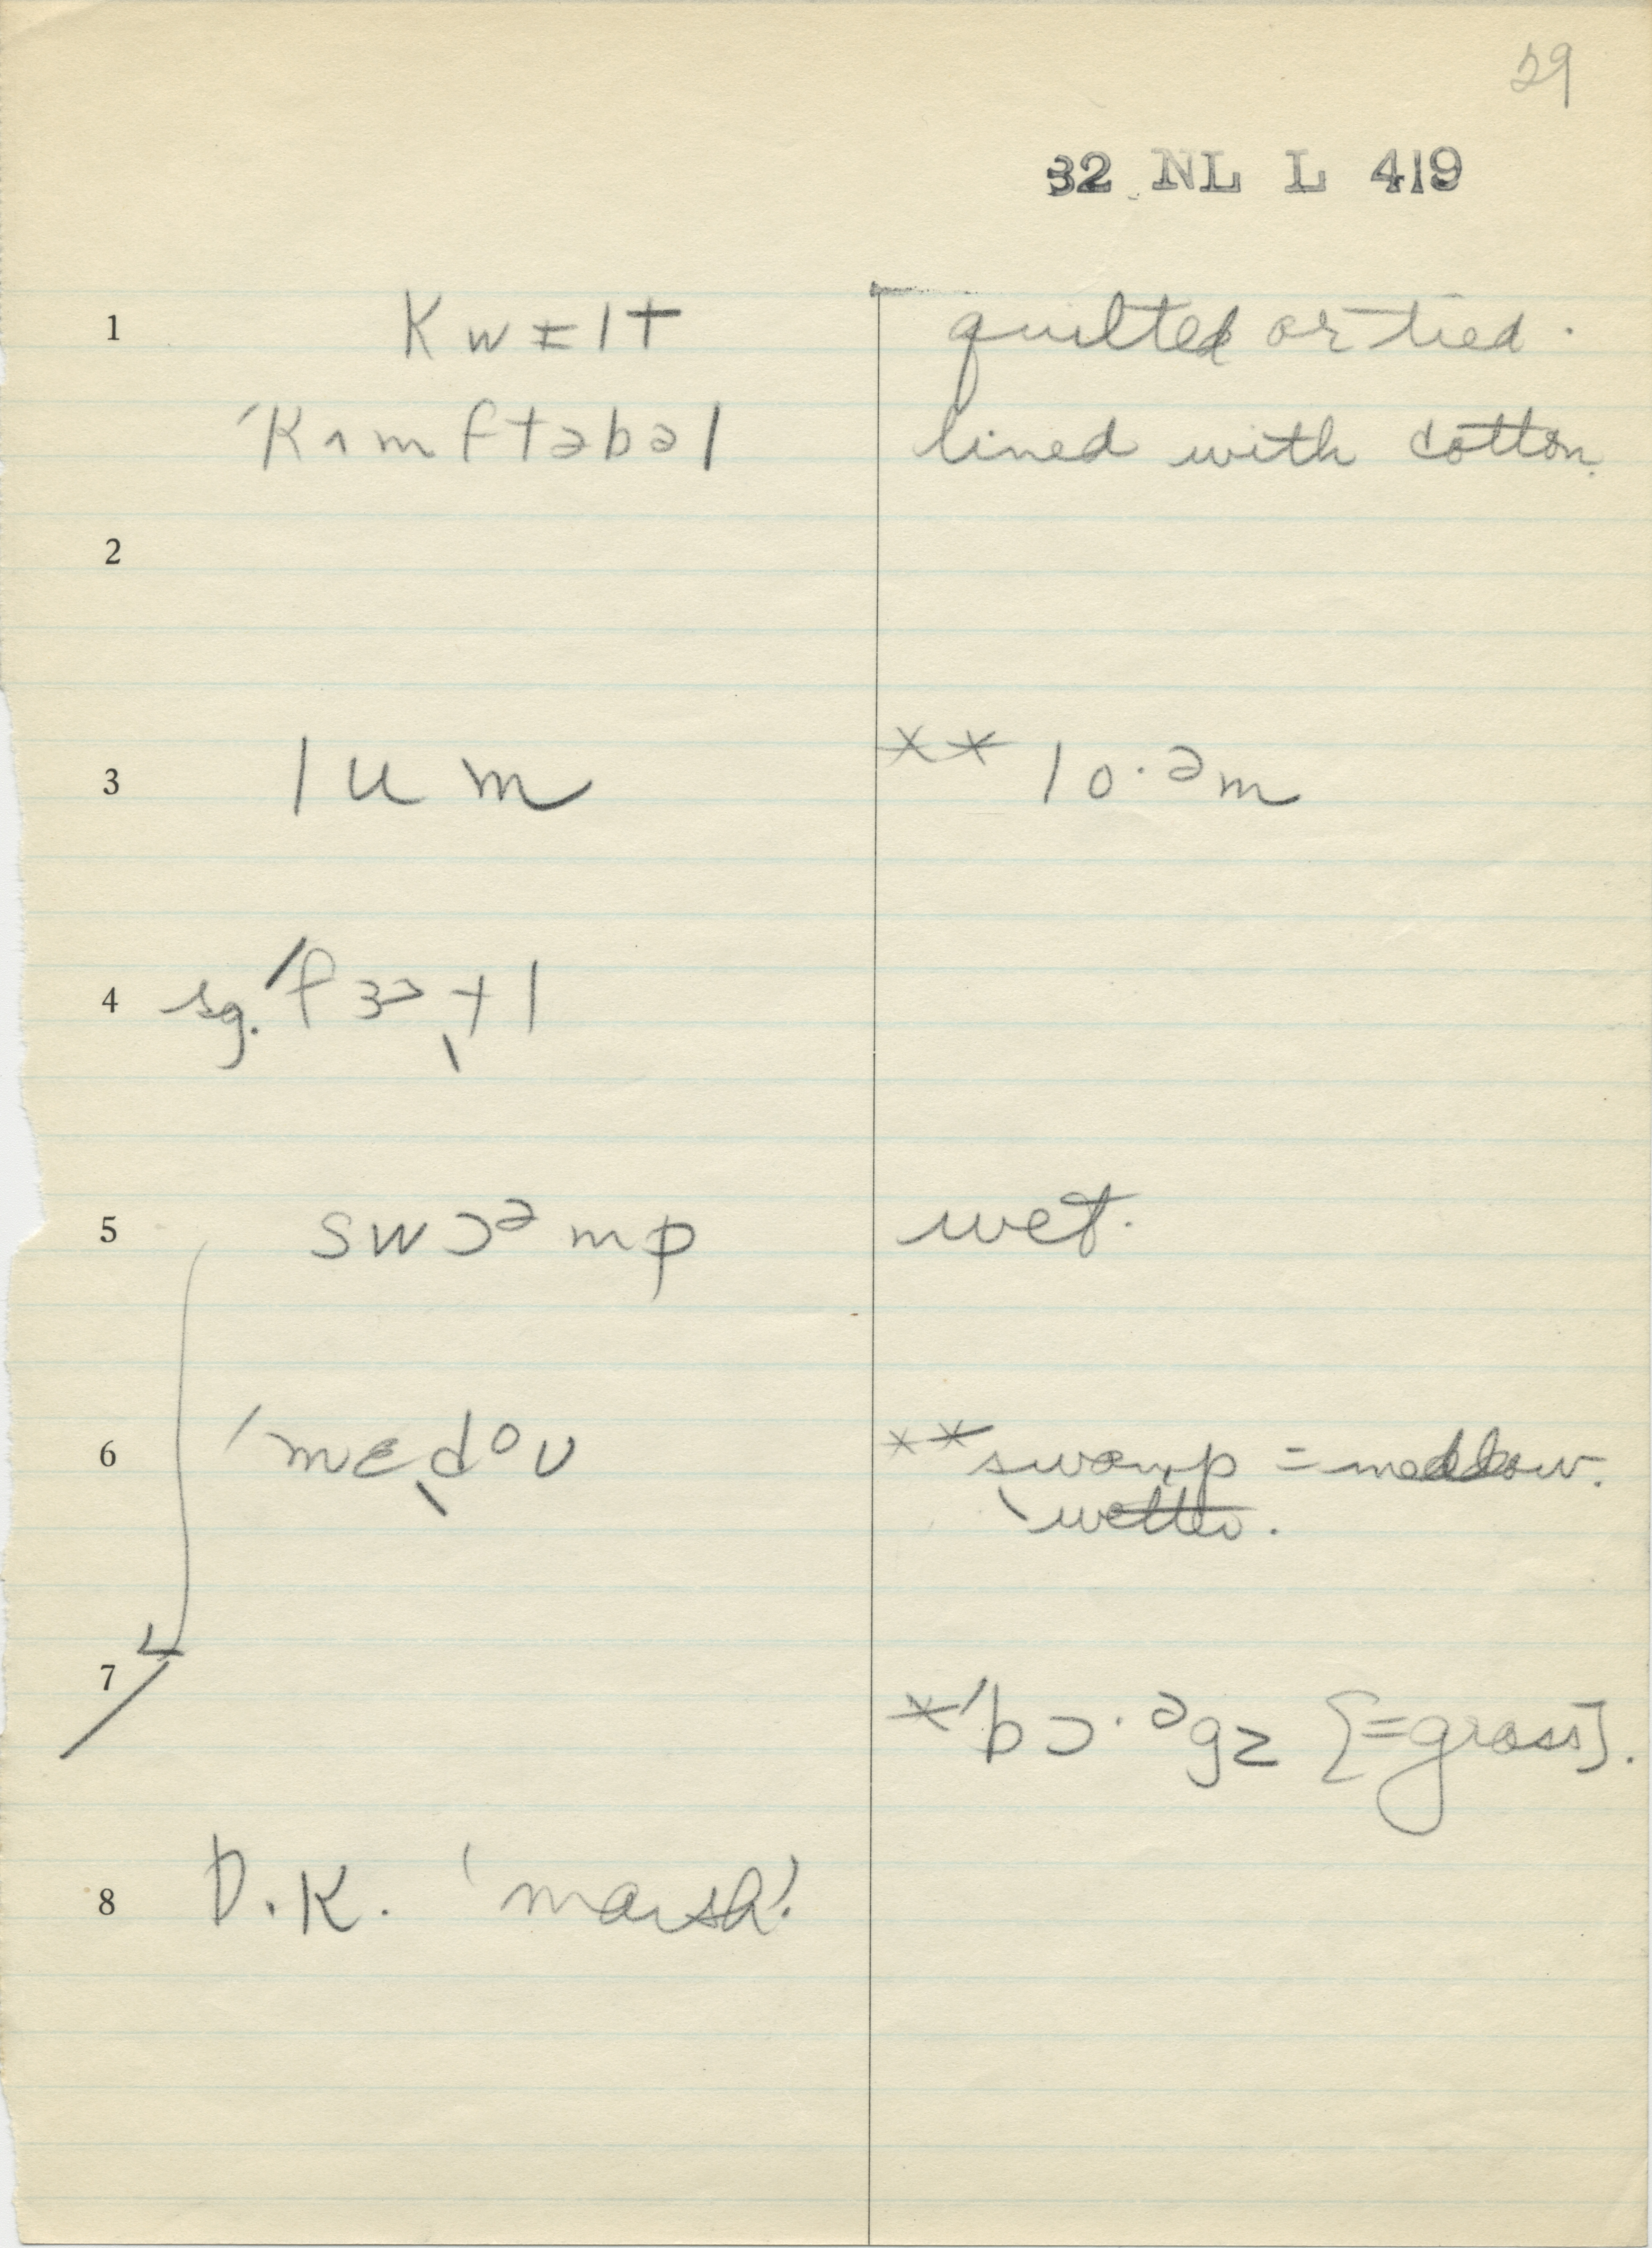 29
32 NL L 419
1 kwɪlt quilted or tied.
ˈkʌmftəbəl lined with cotton.
2
3 lum ** lo·əm
4 sg. ˈfɜɚtl
5 swɔᵊmp wet.
6 ˈmɛdoʊ ** swamp = meddow.
wetter.
7 * ˈbɔ·ᵊgz [=grass].
8 D.K. 'marsh'.